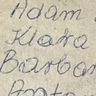 Adam
Klara
Barbar